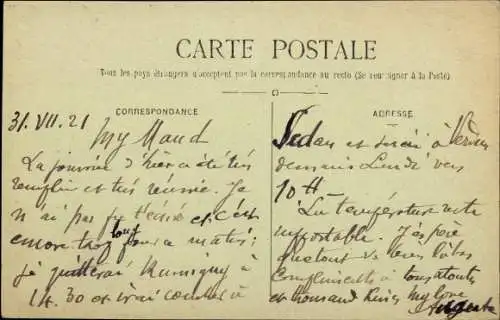 CARTE POSTALE
Tous les pays étrangers n'acceptent pas la correspondance au recto (Se renseigner à la Poste)
CORRESPONDANCE
ADRESSE
31. VII. 21 My Maud
La journée d'hier a été très
remplie et très réussie. Je
n'ai pas et c'est
encore trop tout ce matin;
je quitterai Rumigny à
14.30 et irai coucher à
Sedan et serai à
demain Lundi vers
10 H
La température reste
supportable. J'espère
que tout va
Compliments à tous
et thousand kisses my love